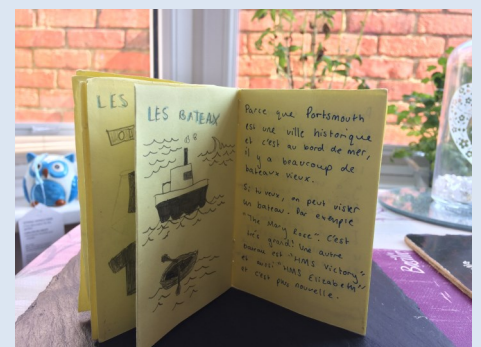 LES
LES BATEAUX
Parce que Portsmouth
est une ville historique
et c'est au bord de mer,
il y a beaucoup de
bateaux vieux.
Si tu veux, on peut visiter
un bateau. Par exemple
"The Mary Rose". C'est
très grand! Une autre
bateau est "HMS Victory"
et aussi "HMS Elizabeth"
et c'est plus nouvelle.